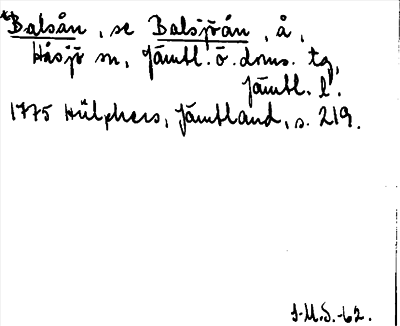 *Balsån, se Balsjöån, å,
Håsjö sn, Jämtl. ö. doms. tg,
Jämtl. l.
1775 Hülphers, Jämtland, s. 219.
I.M.S.-62.